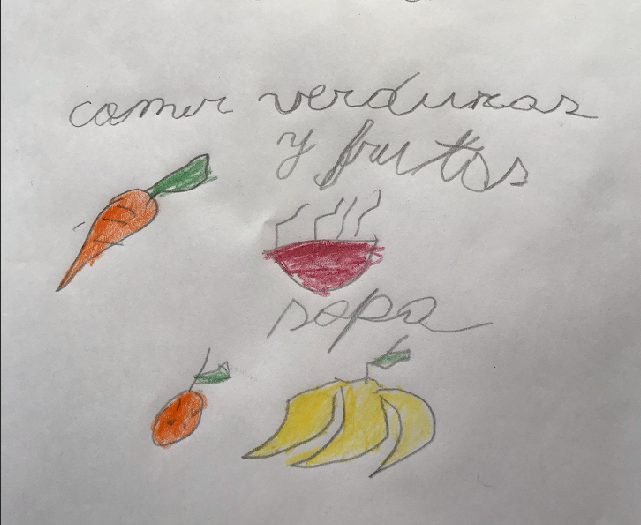 comer verduras
y frutas
sopa